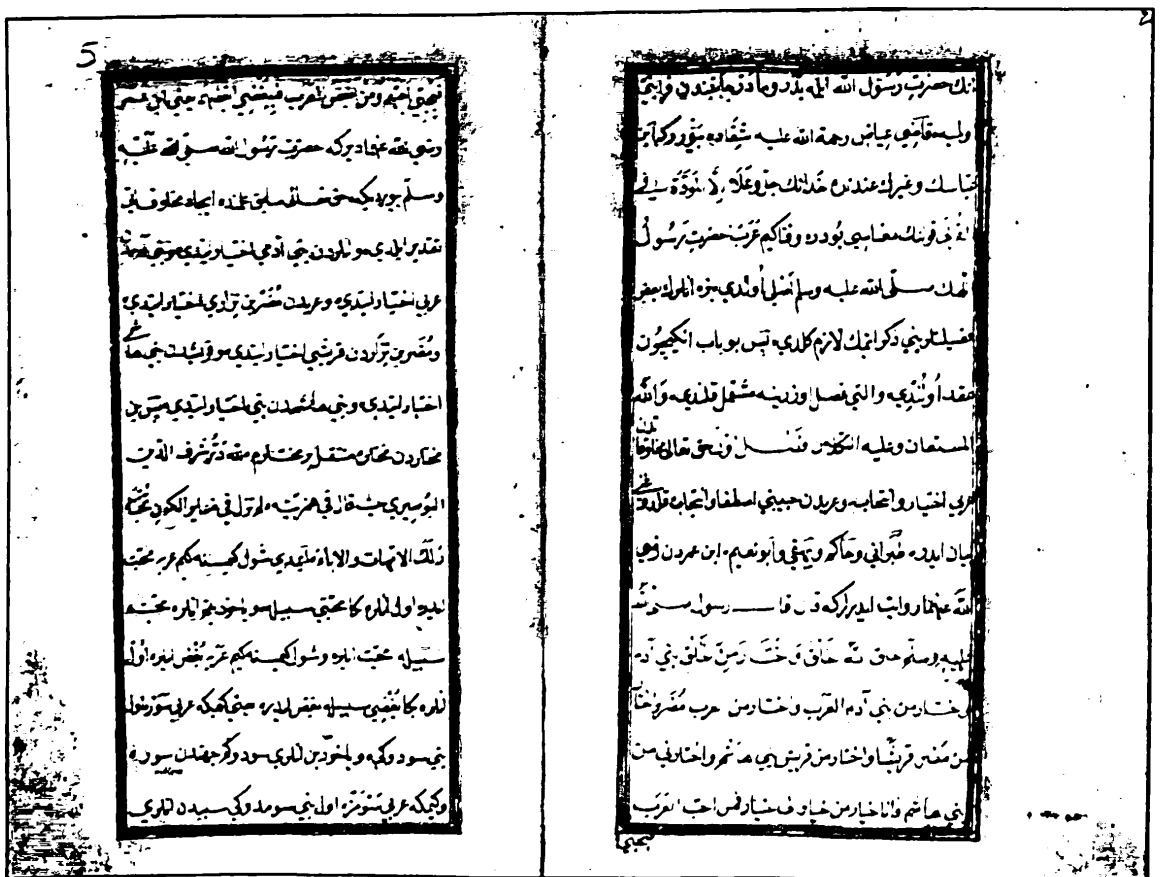 انك حضرت رسول الله ايله بدر وماذر جانبندن قرابتى
ولهذا قاضى عياض رحمة الله عليه شفاده بيورركه ابن
عباسك وغيرك عندنده خدانك جل وعلا الا المودة فى
القربى قولنك معناسى بودر وقتاكيم عرب حضرت رسول
اللهك صلى الله عليه وسلم اصلى اولدى بزه انلرك بعض
فضيلتلرينى ذكر اتمك لازم كلدى پس بو باب انكيچون
عقد اولندى والتى فصل اوزرينه مشتمل قلندى والله
المستعان وعليه التكلان فصل اول حق تعالى مخلوقاتدن
عربى اختيار وانتخاب وعربدن حبيبنى اصطفا وانتجاب قلدوغى
بيان ايدر طبرانى وحاكم وبيهقى وابو نعيم ابن عمردن رضى
الله عنهما روايت ايديرلركه قال قال رسول الله صلى الله
عليه وسلم خلق الله الخلق فاختار من الخلق بنى آدم
واختار من بنى آدم العرب واختار من العرب مضر واختار
من مضر قريشا واختار من قريش بنى هاشم واختارنى من
بنى هاشم فانا خيار من خيار الى خيار فمن احب العرب
فبحبى
5
فبحبى احبهم ومن ابغض العرب فببغضى ابغضهم يعنى ابن عمر
رضى الله عنهمادن كه حضرت رسول الله صلى الله عليه
وسلم بيورديكه حق تعالى سابق علمنده ايجاد مخلوقاتى
تقدير ايلدى بو انلردن بنى آدمى اختيار ايتدى بو بنى آدمدن
عربى اختيار ايتدى وعربدن مضر بن نزارى اختيار ايتدى
ومضر بن نزاردن قريشى اختيار ايتدى بو قريشدن بنى هاشمى
اختيار ايتدى وبنى هاشمدن بنى اختيار ايتدى پس بن
مختاردن مختاره منتقل ومختارم لله در شرف الدين
البوصيرى حيث قال فى همزيته لم تزل فى ضمائر الكون تختار
لك الامهات والاباء ايمدى شول كمسنه كيم عربه محبت
ايده اول انلره بكا محبتى سببيله سويلخود بنم انلره محبتم
سببيله محبت ايدر وشول كمسنه كيم عربه بغض ايده اول
انلره بكا بغضى سببيله بغض ايدر يعنى كيمكه عربى سورسه اول
بنى سودوكى ويا خود بن انلرى سودوكم جهتدن سور
وكيمكه عربى سومزه اول بنى سومدوكى سببدن انلرى